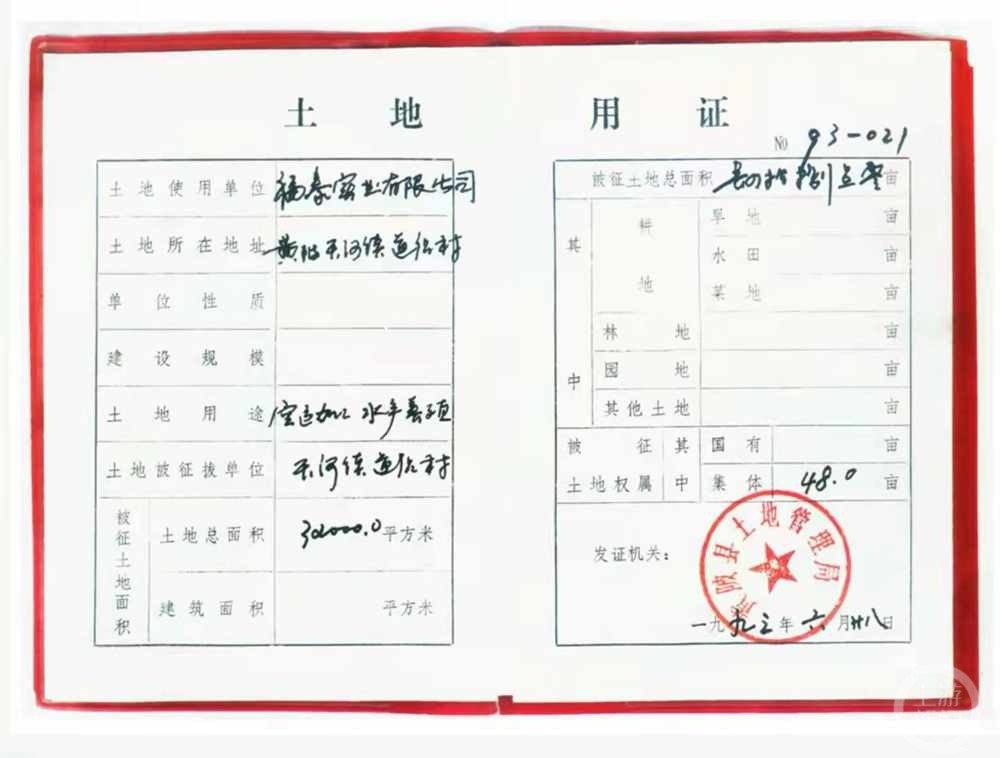 土地用证
№ 93-021
土地使用单位 福泰实业有限公司
土地所在地址 黄陂天河镇道伯村
单位性质
建设规模
土地用途 水产养殖
土地被征拨单位 天河镇道伯村
被征土地面积
土地总面积 平方米
建筑面积 平方米
被征土地总面积 亩
其中
耕地
旱地 亩
水田 亩
菜地 亩
林地 亩
园地 亩
其他土地 亩
被征土地权属
其中
国有 亩
集体 48.0 亩
发证机关：
黄陂县土地管理局
一九九三年六月廿八日
上游